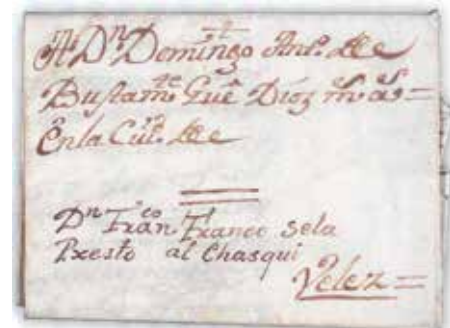 A Dn Domingo Anto. de
Bustamte Gue Dios ms. as. =
En la Ciud. de
Dn Franco Franco sela
Presto al Chasqui
Velez =